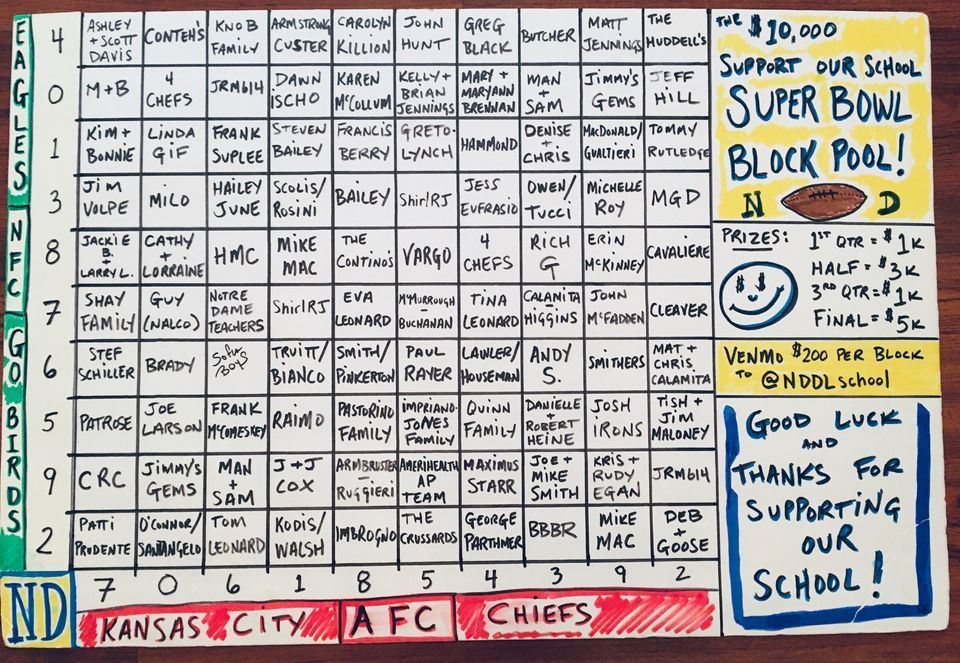 EAGLES NFC GO BIRDS
4 ASHLEY + SCOTT DAVIS CONTEH'S KNOB FAMILY ARMSTRONG CUSTER CAROLYN KILLION JOHN HUNT GREG BLACK BUTCHER MATT JENNINGS THE HUDDELL'S
0 M+B 4 CHEFS JRM614 DAWN ISCHO KAREN McCOLLUM KELLY + BRIAN JENNINGS MARY + MARYANN BRENNAN MAN + SAM JIMMY'S GEMS JEFF HILL
1 KIM + BONNIE LINDA GIF FRANK SUPLEE STEVEN BAILEY FRANCIS BERRY GRETO-LYNCH HAMMOND DENISE + CHRIS MACDONALD/GUALTIERI TOMMY RUTLEDGE
3 JIM VOLPE MILO HAILEY JUNE SCOLIS/ROSINI BAILEY ShirlRJ JESS EUFRASIO OWEN/TUCCI MICHELLE ROY MGD
8 JACKIE B. + LARRY L. CATHY + LORRAINE HMC MIKE MAC THE CONTINOS VARGO 4 CHEFS RICH G ERIN McKINNEY CAVALIERE
7 SHAY FAMILY GUY (NALCO) NOTRE DAME TEACHERS ShirlRJ EVA LEONARD McMURROUGH-BUCHANAN TINA LEONARD CALAMITA HIGGINS JOHN McFADDEN CLEAVER
6 STEF SCHILLER BRADY TRUITT/BIANCO SMITH/PINKERTON PAUL RAYER LAWLER/HOUSEMAN ANDY S. SMITHERS MAT + CHRIS CALAMITA
5 PATROSE JOE LARSON FRANK McCOMESKEY RAIMO PASTORINO FAMILY IMPRIANO-JONES FAMILY QUINN FAMILY DANIELLE + ROBERT HEINE JOSH IRONS TISH + JIM MALONEY
9 CRC JIMMY'S GEMS MAN + SAM J+J COX ARMBRUSTER RUGGIERI AMERIHEALTH AP TEAM MAXIMUS STARR JOE + MIKE SMITH KRIS + RUDY EGAN JRM614
2 PATTI PRUDENTE O'CONNOR/SANTANGELO TOM LEONARD KODIS/WALSH IMBROGNO THE CRUSSARDS GEORGE PARTHMER BBBR MIKE MAC DEB + GOOSE
7 0 6 1 8 5 4 3 9 2
ND
KANSAS CITY AFC CHIEFS
THE $10,000
SUPPORT OUR SCHOOL
SUPER BOWL
BLOCK POOL!
N D
PRIZES: 1ST QTR = $1K
HALF = $3K
3RD QTR = $1K
FINAL = $5K
VENMO $200 PER BLOCK
TO @NDDLSCHOOL
GOOD LUCK
AND
THANKS FOR
SUPPORTING
OUR
SCHOOL!